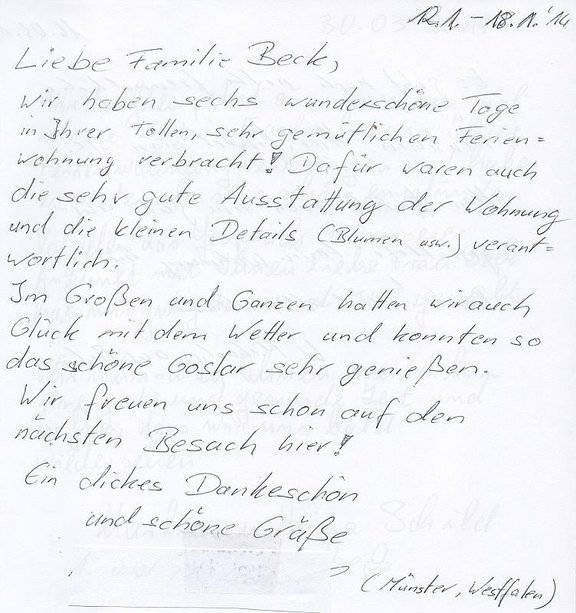 12.1. - 18.1.'14
Liebe Familie Beck,
wir haben sechs wunderschöne Tage
in Ihrer tollen, sehr gemütlichen Ferien=
wohnung verbracht! Dafür waren auch
die sehr gute Ausstattung der Wohnung
und die kleinen Details (Blumen usw.) verant=
wortlich.
Im Großen und Ganzen hatten wir auch
Glück mit dem Wetter und konnten so
das schöne Goslar sehr genießen.
Wir freuen uns schon auf den
nächsten Besuch hier!
Ein dickes Dankeschön
und schöne Grüße
(Münster, Westfalen)